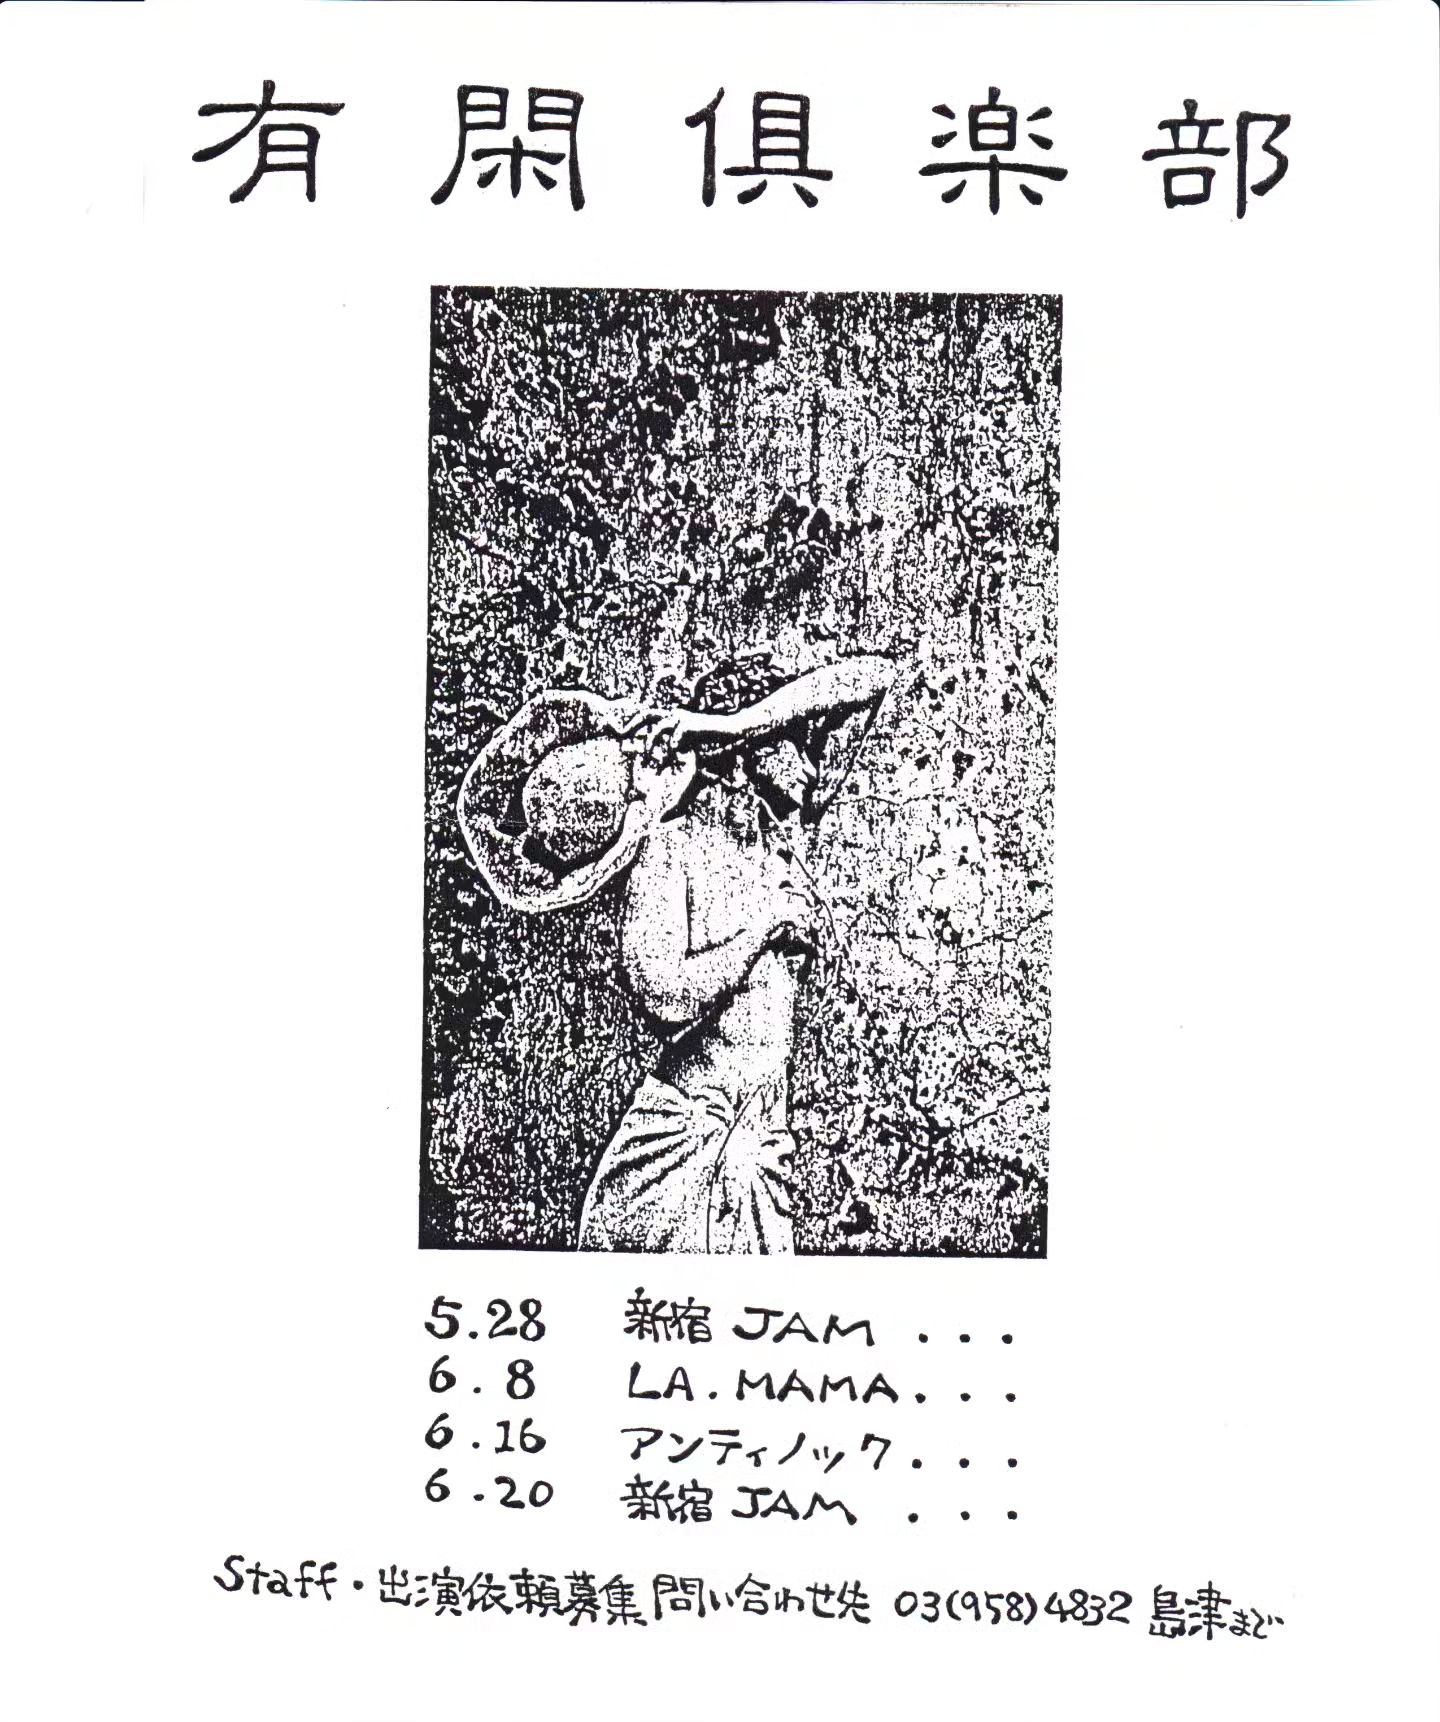 有閑倶楽部
5.28 新宿 JAM ...
6.8 LA.MAMA...
6.16 アンティノック...
6.20 新宿 JAM ...
Staff・出演依頼募集 問い合わせ先 03(958)4832 島津まで